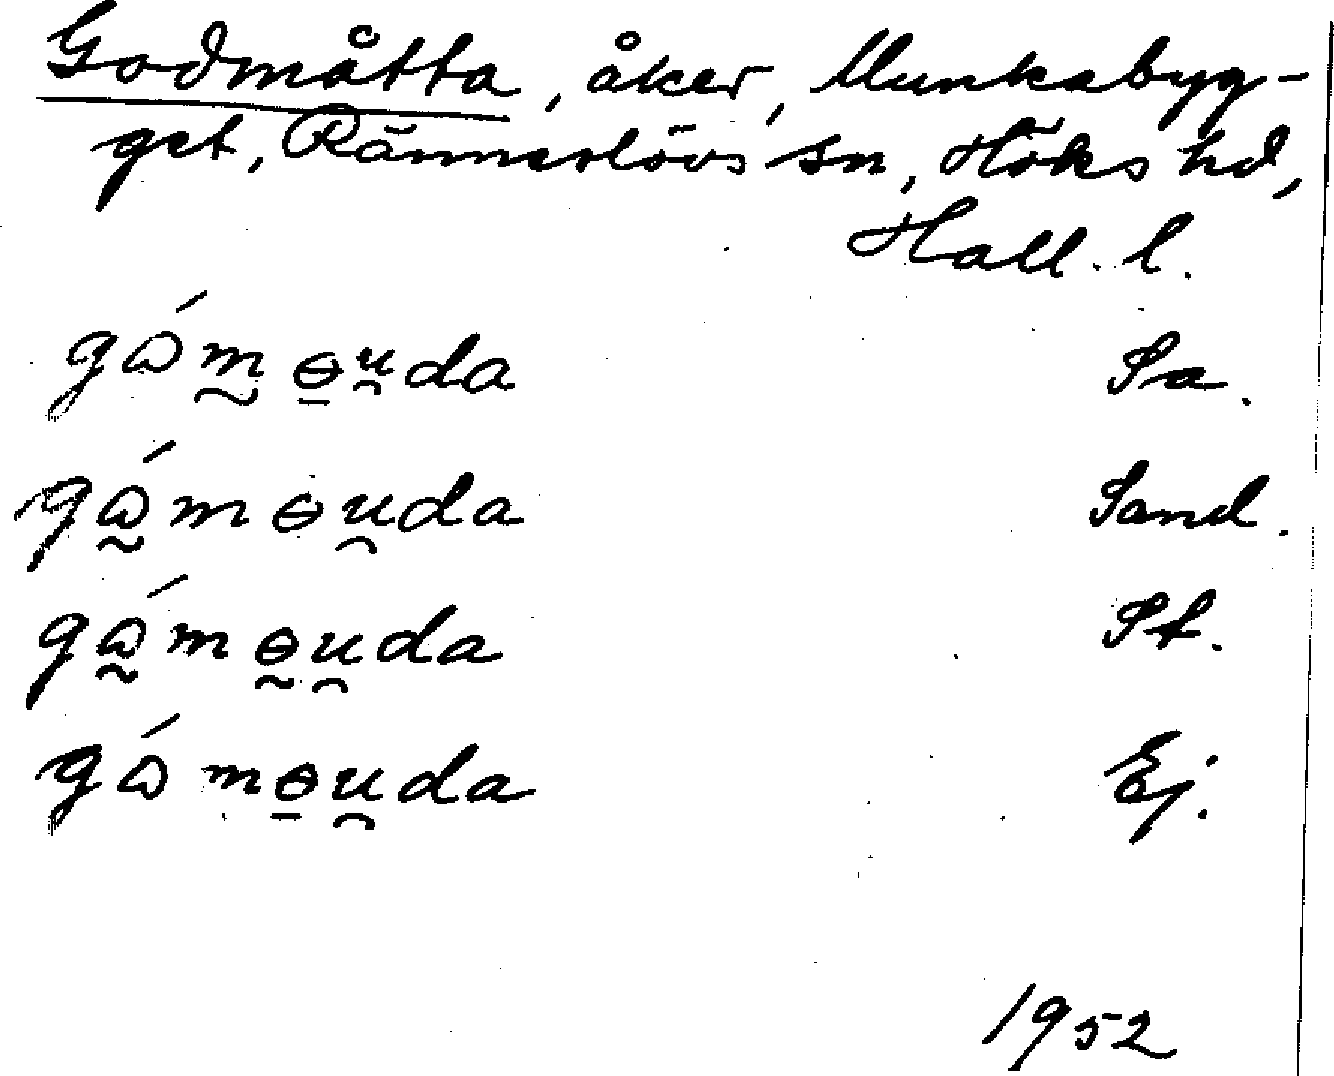 Godmåtta, åker, Munkabyg-
get, Ränneslövs sn, Höks hd,
Hall. l.
gɷ́m̰ ɵ̱u̯da Sa.
gɷ̰́mɵu̯da Sand.
gɷ̰́mɵ̰u̯da St.
gɷ́mɵ̱u̯da Ej.
1952